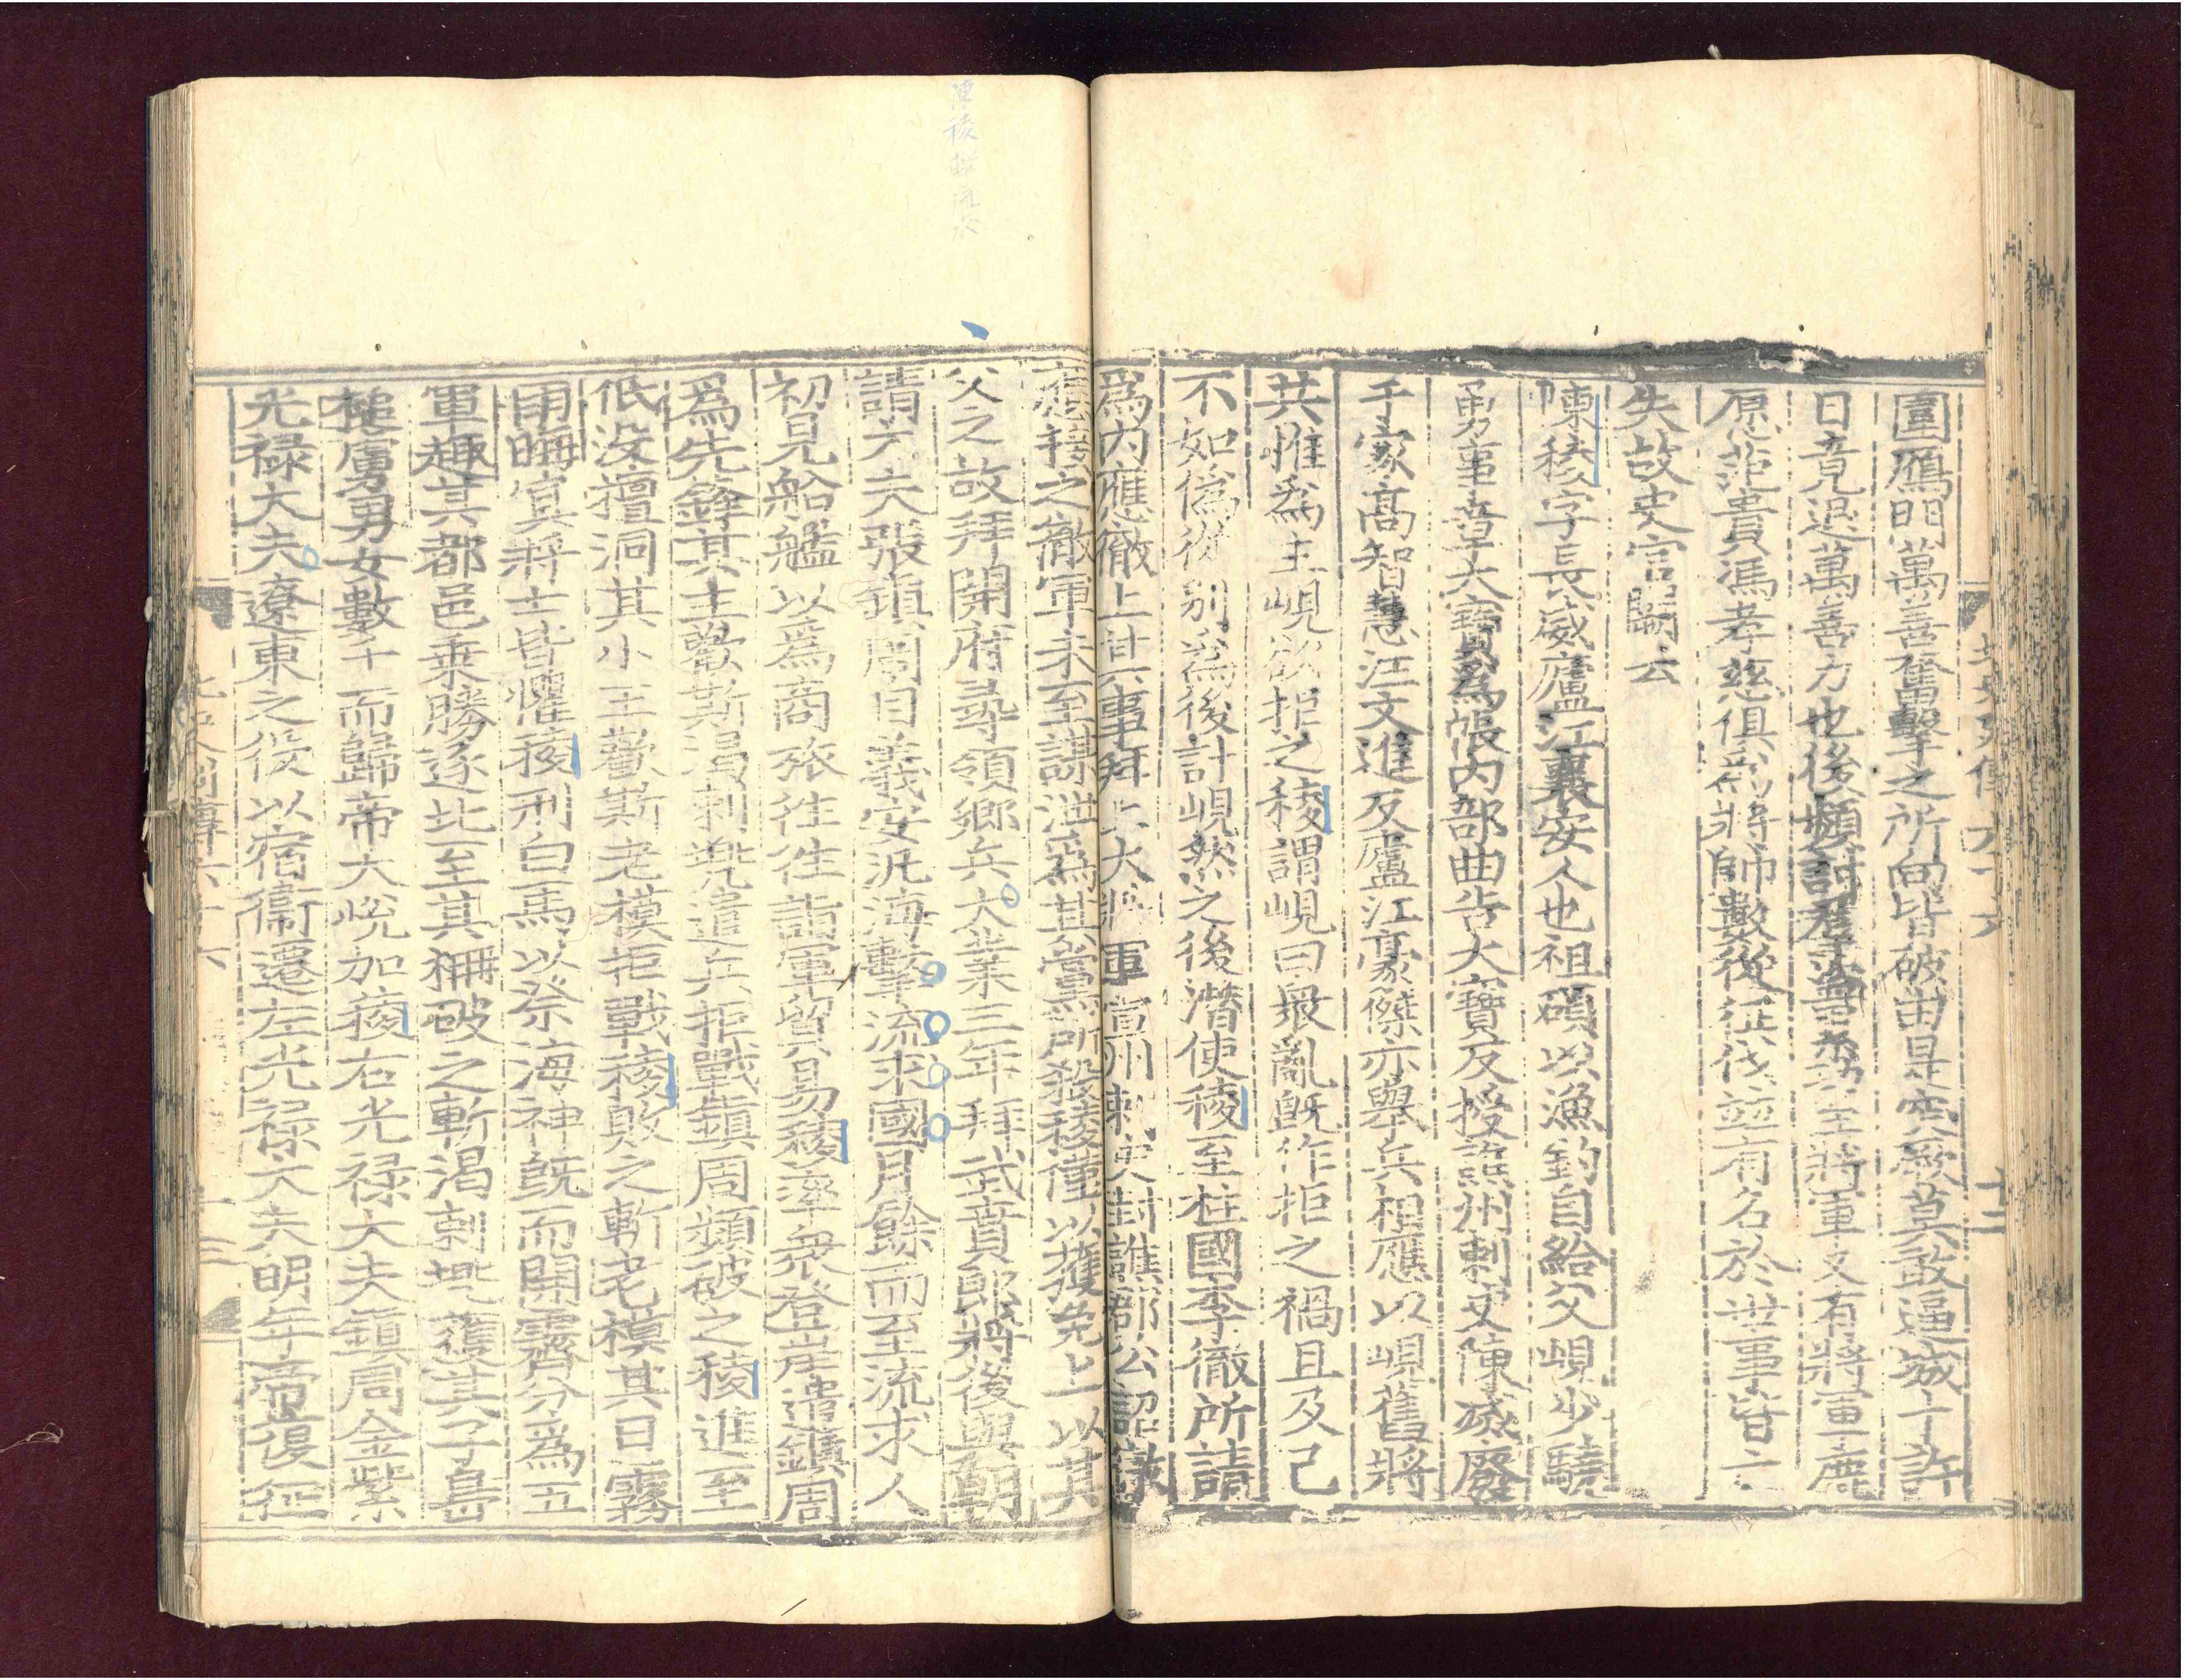 圍鴈門萬善奮擊之所向皆破由是突厥莫敢逼城十許
日竟退萬善力也後頻討羣盗累功至將軍又有將軍鹿
原范貴馮孝慈俱爲將帥數從征伐並有名於世事皆亡
失故史官闕云
陳稜字長威廬江襄安人也祖碩以漁釣自給父峴少驍
勇事章大寶爲帳內部曲告大寶反授譙州刺史陳滅廢
于家高智慧汪文進反廬江豪傑亦舉兵相應以峴舊將
共推爲主峴欲拒之稜謂峴曰衆亂旣作拒之禍且及己
不如僞從別爲後計峴然之後潛使稜至柱國李徹所請
爲內應徹上其事拜上大將軍宣州刺史封譙郡公詔徹
應接之徹軍未至謀泄爲其黨所殺稜僅以獲免上以其
父之故拜開府尋領鄉兵大業三年拜武賁郎將後與朝
請大夫張鎮周自義安汎海擊流求國月餘而至流求人
初見船艦以爲商旅往往詣軍貿易稜率衆登岸遣鎮周
爲先鋒其主歡斯渴剌兜遣兵拒戰鎮周頻破之稜進至
低没檀洞其小王歡斯老模拒戰稜敗之斬老模其日霧
雨晦冥將士皆懼稜刑白馬以祭海神旣而開霽分爲五
軍趣其都邑乗勝逐北至其柵破之斬渴剌兜獲其子島
槌虜男女數千而歸帝大悅加稜右光禄大夫鎮周金紫
光禄大夫遼東之役以宿衛遷左光禄大夫明年帝復征
北史列傳六十六
十二
列傳六十六
十三